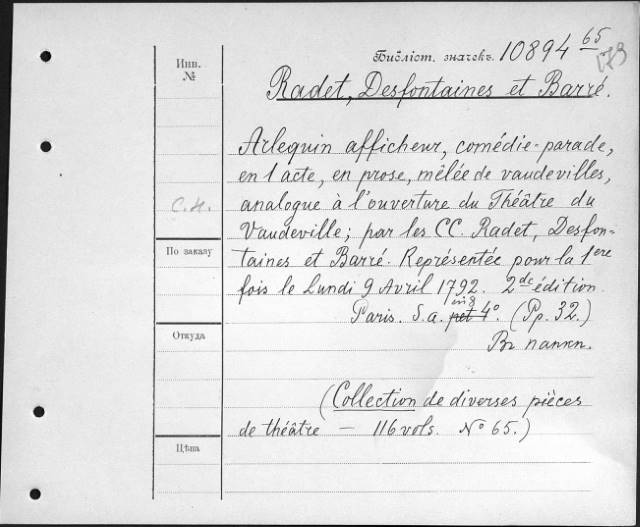 Инв. №
Библіот. значекъ 10894 65
173
Radet, Desfontaines et Barré.
Arlequin afficheur, comédie-parade,
en 1 acte, en prose, mêlée de vaudevilles,
С.Н.
analogue à l'ouverture du Théâtre du
Vaudeville; par les CC. Radet, Desfon-
По заказу
taines et Barré. Représentée pour la 1ere
fois le Lundi 9 Avril 1792. 2de édition.
in 8
Paris. S.a. pet 4°. (Pp. 32.)
Откуда
Въ папкѣ.
(Collection de diverses pièces
de théâtre — 116 vols. № 65.)
Цѣна